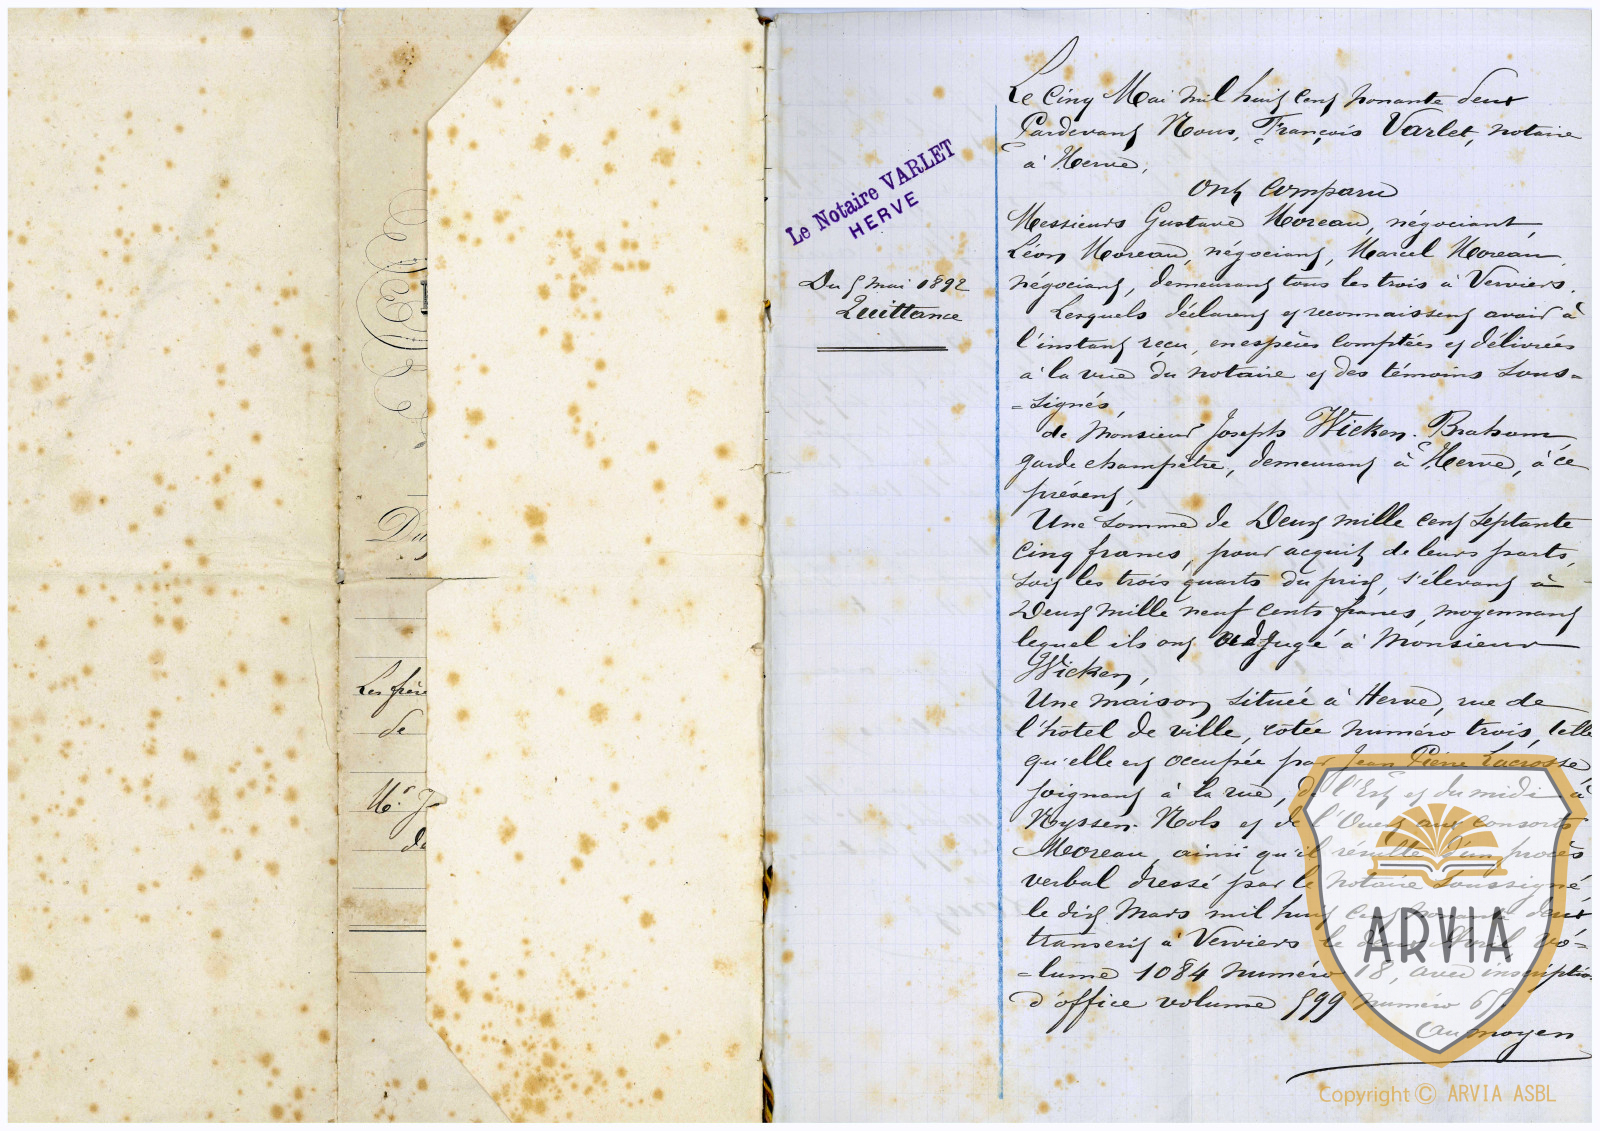 Du
Les frè
de
Mr J
de
Le Notaire VARLET
HERVE
Du 5 mai 1892
Quittance
Le cinq Mai mil huit cent nonante deux
Pardevant Nous, François Varlet, notaire
à Herve,
Ont comparu
Messieurs Gustave Moreau, négociant,
Léon Moreau, négociant, Marcel Moreau,
négociant, demeurant tous les trois à Verviers.
Lesquels déclarent et reconnaissent avoir à
l'instant reçu, en espèces comptées et délivrées
à la vue du notaire et des témoins sous=
=signés,
de Monsieur Joseph Wicken-Braham,
garde champêtre, demeurant à Herve, à ce
présent,
Une somme de Deux mille cent septante
cinq francs, pour acquit de leurs parts,
soit les trois quarts du prix, s'élevant à
Deux mille neuf cents francs, moyennant
lequel ils ont adjugé à Monsieur
Wicken,
Une maison située à Herve, rue de
l'hôtel de ville, cotée numéro trois, telle
qu'elle est occupée par Jean Pierre Lacrosse,
joignant à la rue, de l'Est et du midi à
Nyssen-Nols et de l'Ouest aux consorts
Moreau, ainsi qu'il résulte d'un procès
verbal dressé par le notaire soussigné
le dix Mars mil huit cent nonante deux
transcrit à Verviers le deux Avril vo=
=lume 1084 numéro 18, avec inscription
d'office volume 599 numéro 65.
Au moyen
ARVIA
Copyright © ARVIA ASBL